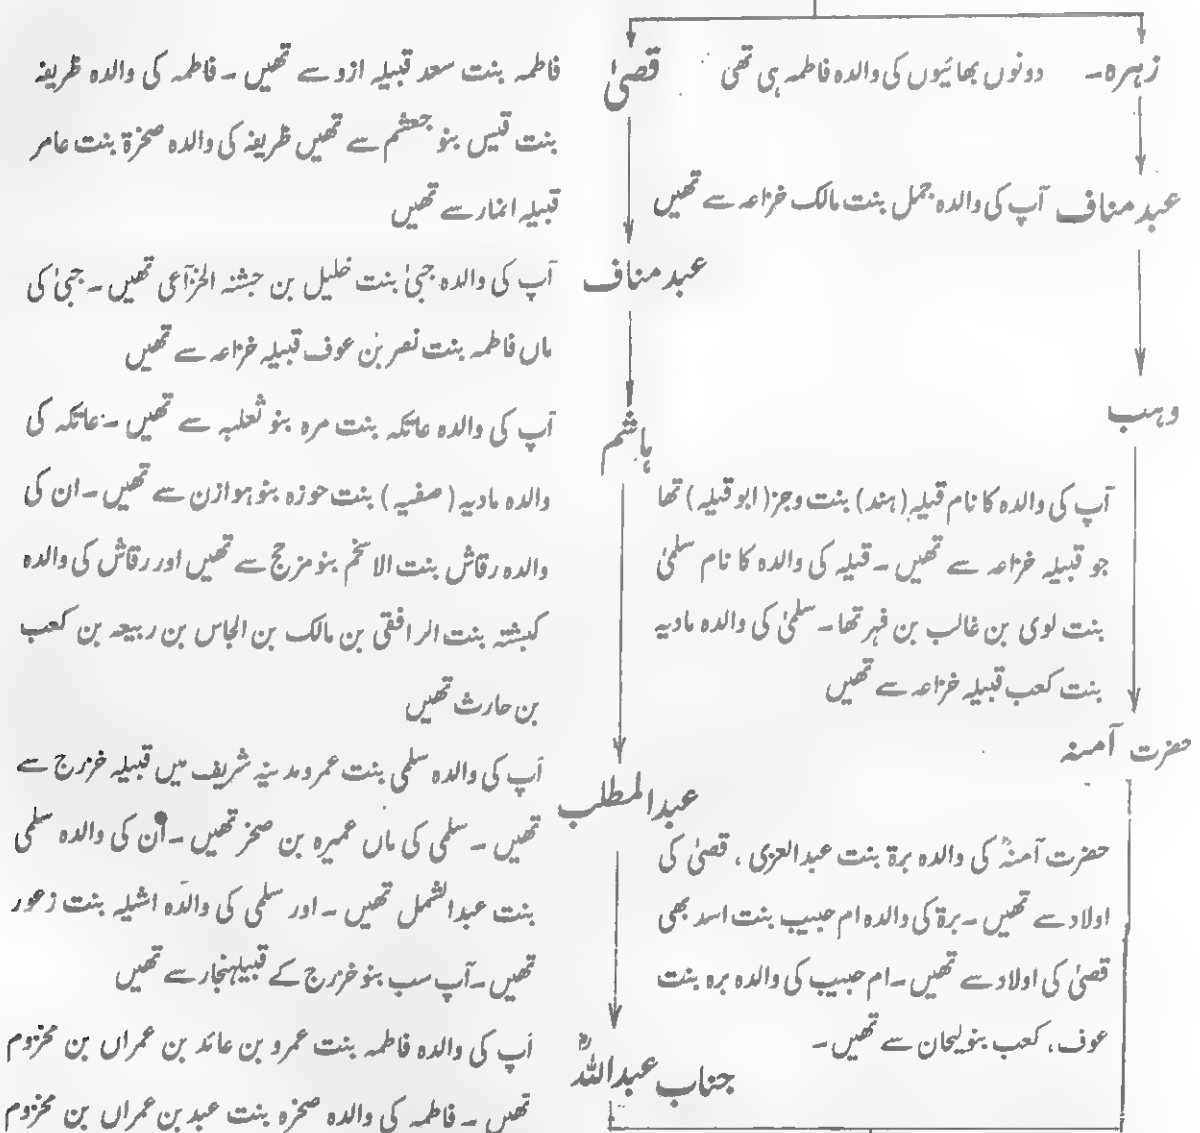 زہرہ۔ دونوں بھائیوں کی والدہ فاطمہ ہی تھی
عبد مناف آپ کی والدہ جمل بنت مالک خزاعہ سے تھیں
وہب
آپ کی والدہ کا نام قیلہ (ہند) بنت وجز (ابو قیلہ) تھا
جو قبیلہ خزاعہ سے تھیں ۔ قیلہ کی والدہ کا نام سلمیٰ
بنت لوی بن غالب بن فہر تھا۔ سلمیٰ کی والدہ ماویہ
بنت کعب قبیلہ خزاعہ سے تھیں
حضرت آمنہ
حضرت آمنہؓ کی والدہ برۃ بنت عبدالعزی ، قصیٰ کی
اولاد سے تھیں ۔ برۃ کی والدہ ام حبیب بنت اسد بھی
قصیٰ کی اولاد سے تھیں ۔ ام حبیب کی والدہ برہ بنت
عوف، کعب بنو لیحان سے تھیں ۔
قصیٰ
فاطمہ بنت سعد قبیلہ ازو سے تھیں ۔ فاطمہ کی والدہ ظریفہ
بنت قیس بنو جعشم سے تھیں ظریفہ کی والدہ صخرۃ بنت عامر
قبیلہ انمار سے تھیں
عبد مناف
آپ کی والدہ حبیٰ بنت خلیل بن حبشنہ الخزآعی تھیں ۔ حبیٰ کی
ماں فاطمہ بنت نصر بن عوف قبیلہ خزاعہ سے تھیں
ہاشم
آپ کی والدہ عاتکہ بنت مرہ بنو ثعلبہ سے تھیں ۔ عاتکہ کی
والدہ مادیہ (صفیہ) بنت حوزہ بنو ہوازن سے تھیں ۔ ان کی
والدہ رقاش بنت الاسخم بنو مزحج سے تھیں اور رقاش کی والدہ
کبشتہ بنت الرافقی بن مالک بن الجاس بن ربیعہ بن کعب
بن حارث تھیں
عبدالمطلب
آپ کی والدہ سلمی بنت عمرو مدینہ شریف میں قبیلہ خزرج سے
تھیں ۔ سلمی کی ماں عمیرہ بن صخر تھیں ۔ ان کی والدہ سلمی
بنت عبدالشمل تھیں ۔ اور سلمی کی والدہ اشیلہ بنت زعور
تھیں ۔ آپ سب بنو خزرج کے قبیلہنجار سے تھیں
جناب عبداللہؓ
آپ کی والدہ فاطمہ بنت عمرو بن عائد بن عمراں بن مخزوم
تھیں ۔ فاطمہ کی والدہ صخرہ بنت عبد بن عمراں بن مخزوم